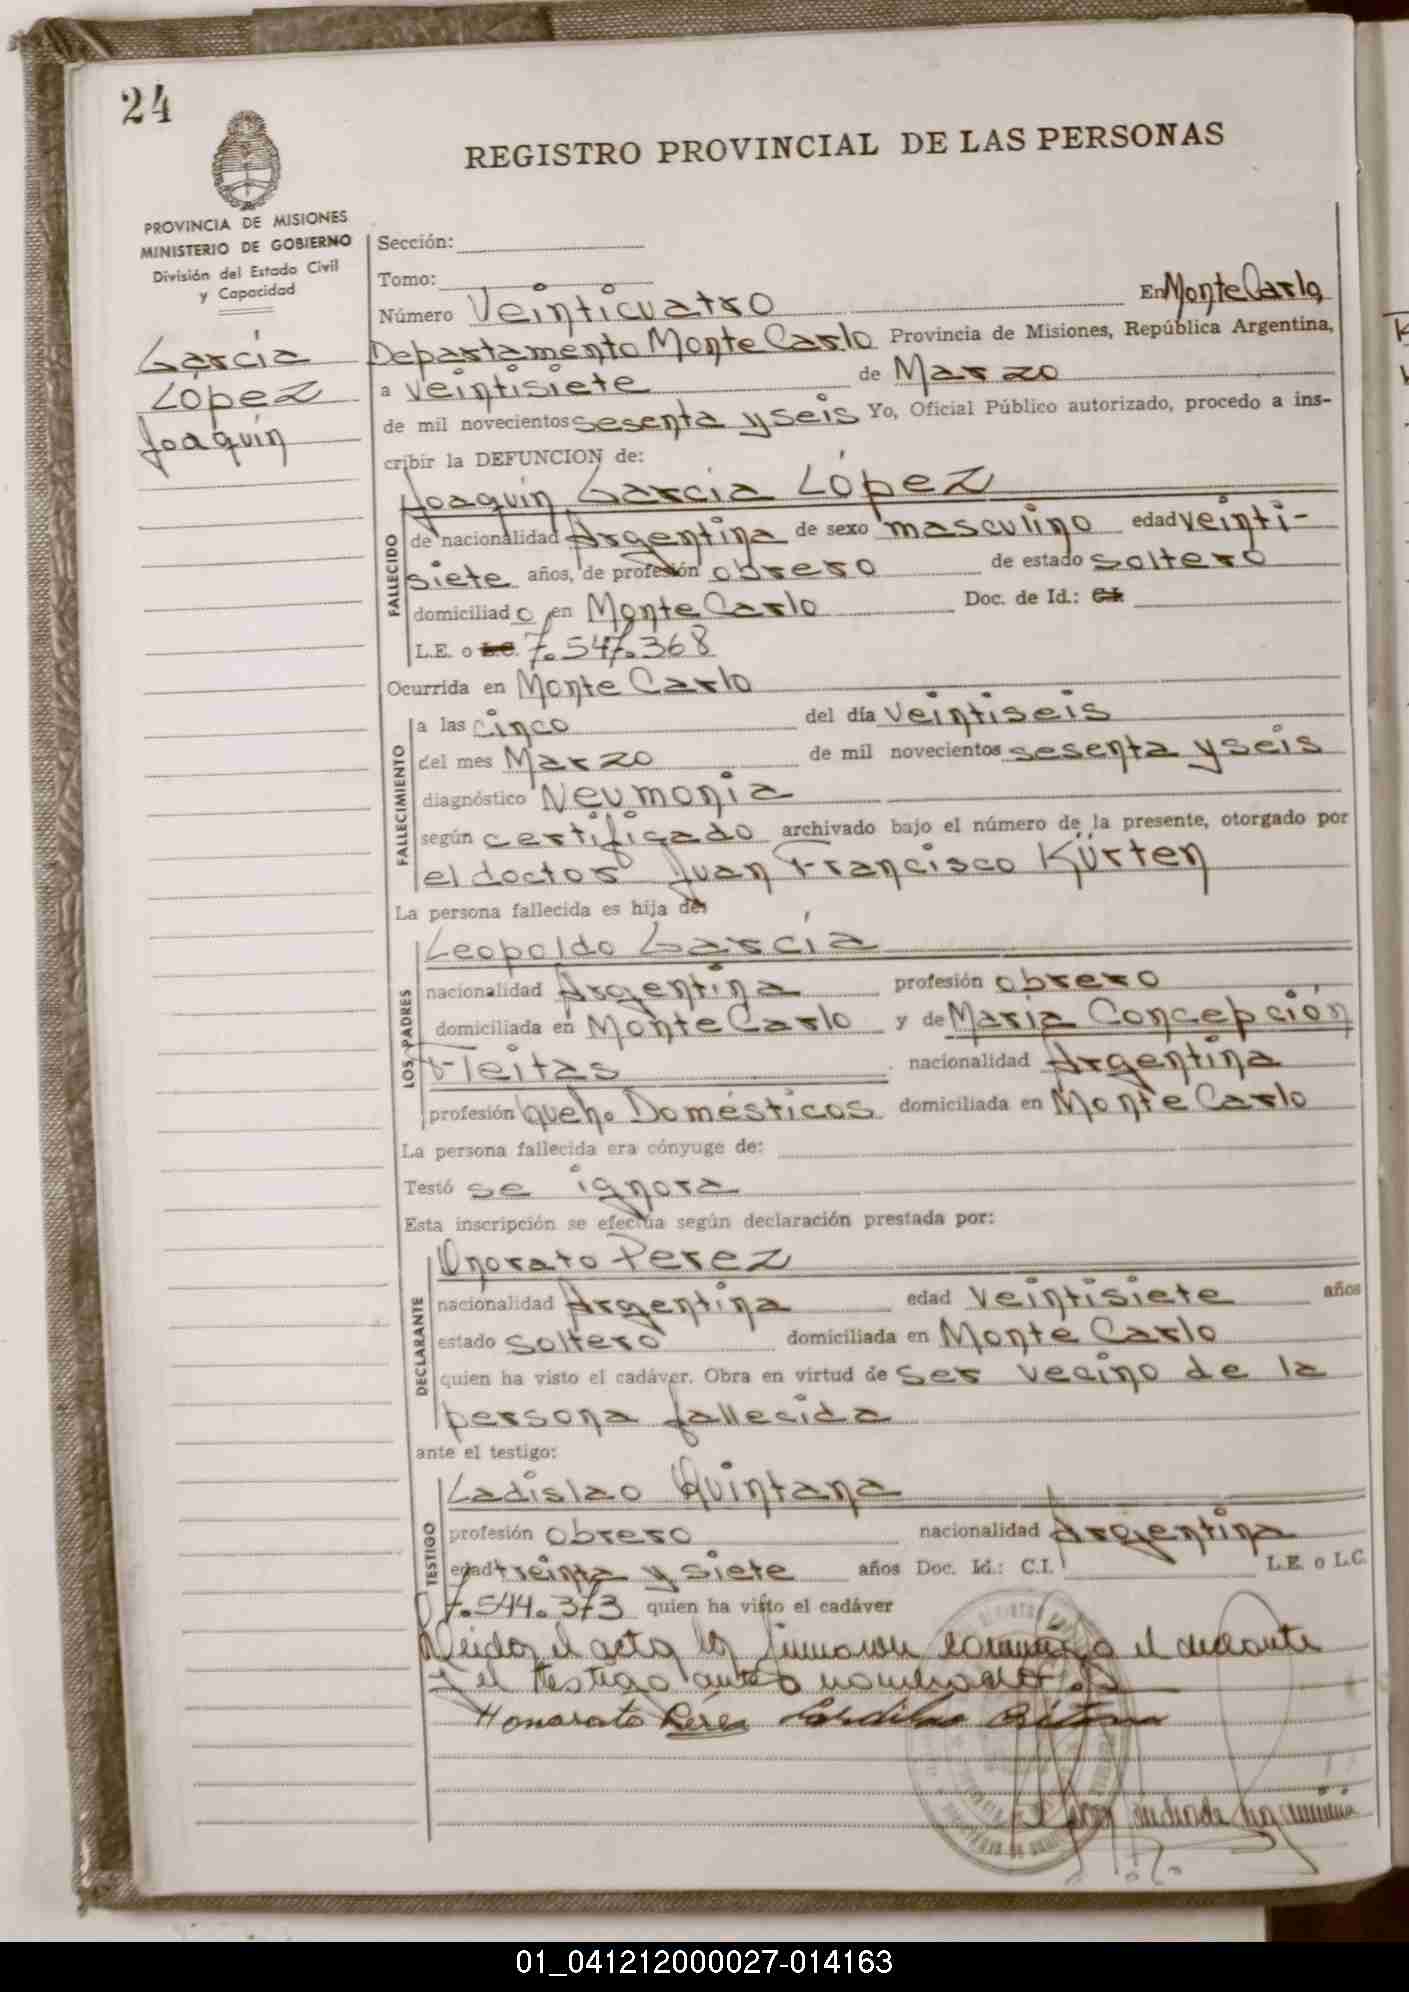 24
REGISTRO PROVINCIAL DE LAS PERSONAS
PROVINCIA DE MISIONES
MINISTERIO DE GOBIERNO
División del Estado Civil
y Capacidad
García
López
Joaquín
Sección:
Tomo:
Número Veinticuatro En Monte Carlo,
Departamento Monte Carlo Provincia de Misiones, República Argentina,
a veintisiete de Marzo
de mil novecientos sesenta y seis Yo, Oficial Público autorizado, procedo a ins-
cribir la DEFUNCION de:
Joaquín García López
FALLECIDO
de nacionalidad Argentina de sexo masculino edad veinti-
siete años, de profesión obrero de estado soltero
domiciliado en Monte Carlo Doc. de Id.:
L.E. o L.C. 7.547.368
Ocurrida en Monte Carlo
FALLECIMIENTO
a las cinco del día veintiseis
del mes Marzo de mil novecientos sesenta y seis
diagnóstico Neumonia
según certificado archivado bajo el número de la presente, otorgado por
el doctor Juan Francisco Kürten
La persona fallecida es hija de:
LOS PADRES
Leopoldo García
nacionalidad Argentina profesión obrero
domiciliada en Monte Carlo y de María Concepción
Fleitas nacionalidad Argentina
profesión Queh. Domésticos domiciliada en Monte Carlo
La persona fallecida era cónyuge de:
Testó se ignora
Esta inscripción se efectúa según declaración prestada por:
DECLARANTE
Onorato Perez
nacionalidad Argentina edad veintisiete años
estado soltero domiciliada en Monte Carlo
quien ha visto el cadáver. Obra en virtud de ser vecino de la
persona fallecida
ante el testigo:
TESTIGO
Ladislao Quintana
profesión obrero nacionalidad Argentina
edad treinta y siete años Doc. Id.: C.I. L.E. o L.C.
7.544.373 quien ha visto el cadáver
Leido el acta la firmaron conmigo el declarante
y el testigo antes nombrados
Honorato Pérez
01_041212000027-014163